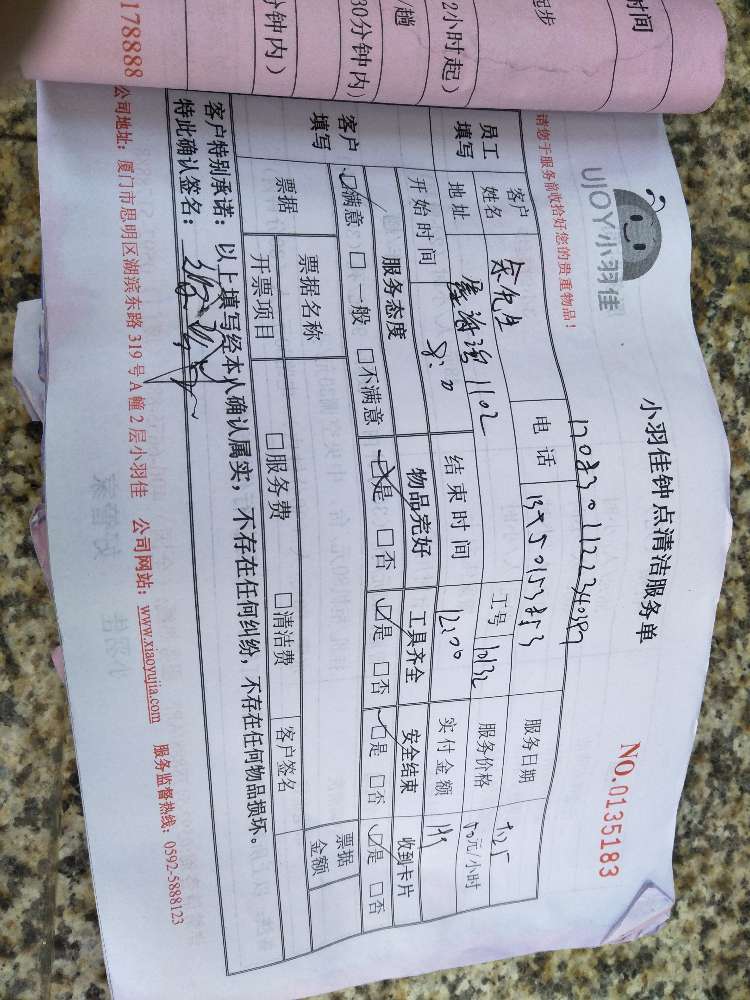 时间
起步
2小时起)
/趟
30分钟内)
分钟内)
178888
UJOY小羽佳
小羽佳钟点清洁服务单
NO.0135183
请您于服务前收拾好您的贵重物品!
员工填写
客户姓名 余先生 电话 服务日期
地址 1102 工号 10132 服务价格 50元/小时
开始时间 8:00 结束时间 12:00 实付金额
客户填写
服务态度 物品完好 工具齐全 安全结束 收到卡片
☑满意 □一般 □不满意 ☑是 □否 ☑是 □否 ☑是 □否 ☑是 □否
票据 票据名称 票据金额
开票项目 □服务费 □清洁费 客户签名
客户特别承诺:以上填写经本人确认属实,不存在任何纠纷,不存在任何物品损坏。
特此确认签名:
公司地址:厦门市思明区湖滨东路319号A幢2层小羽佳 公司网站:www.xiaoyujia.com 服务监督热线:0592-5888123